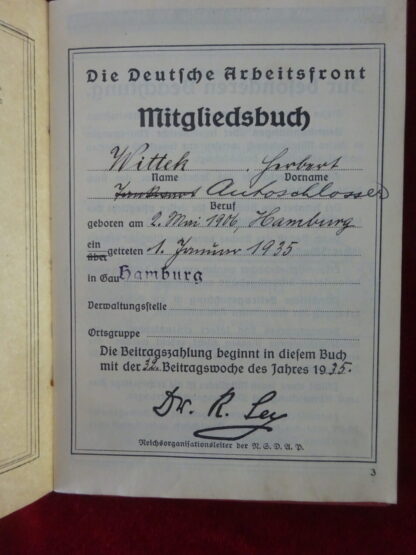 Die Deutsche Arbeitsfront
Mitgliedsbuch
Wittek Herbert
Name Vorname
Autoschlosser
Beruf
geboren am 2. Mai 1906, Hamburg
ein
über getreten 1. Januar 1935
in Gau Hamburg
Verwaltungsstelle
Ortsgruppe
Die Beitragszahlung beginnt in diesem Buch
mit der 32. Beitragswoche des Jahres 1935.
Dr. R. Ley
Reichsorganisationsleiter der N.S.D.A.P.
3